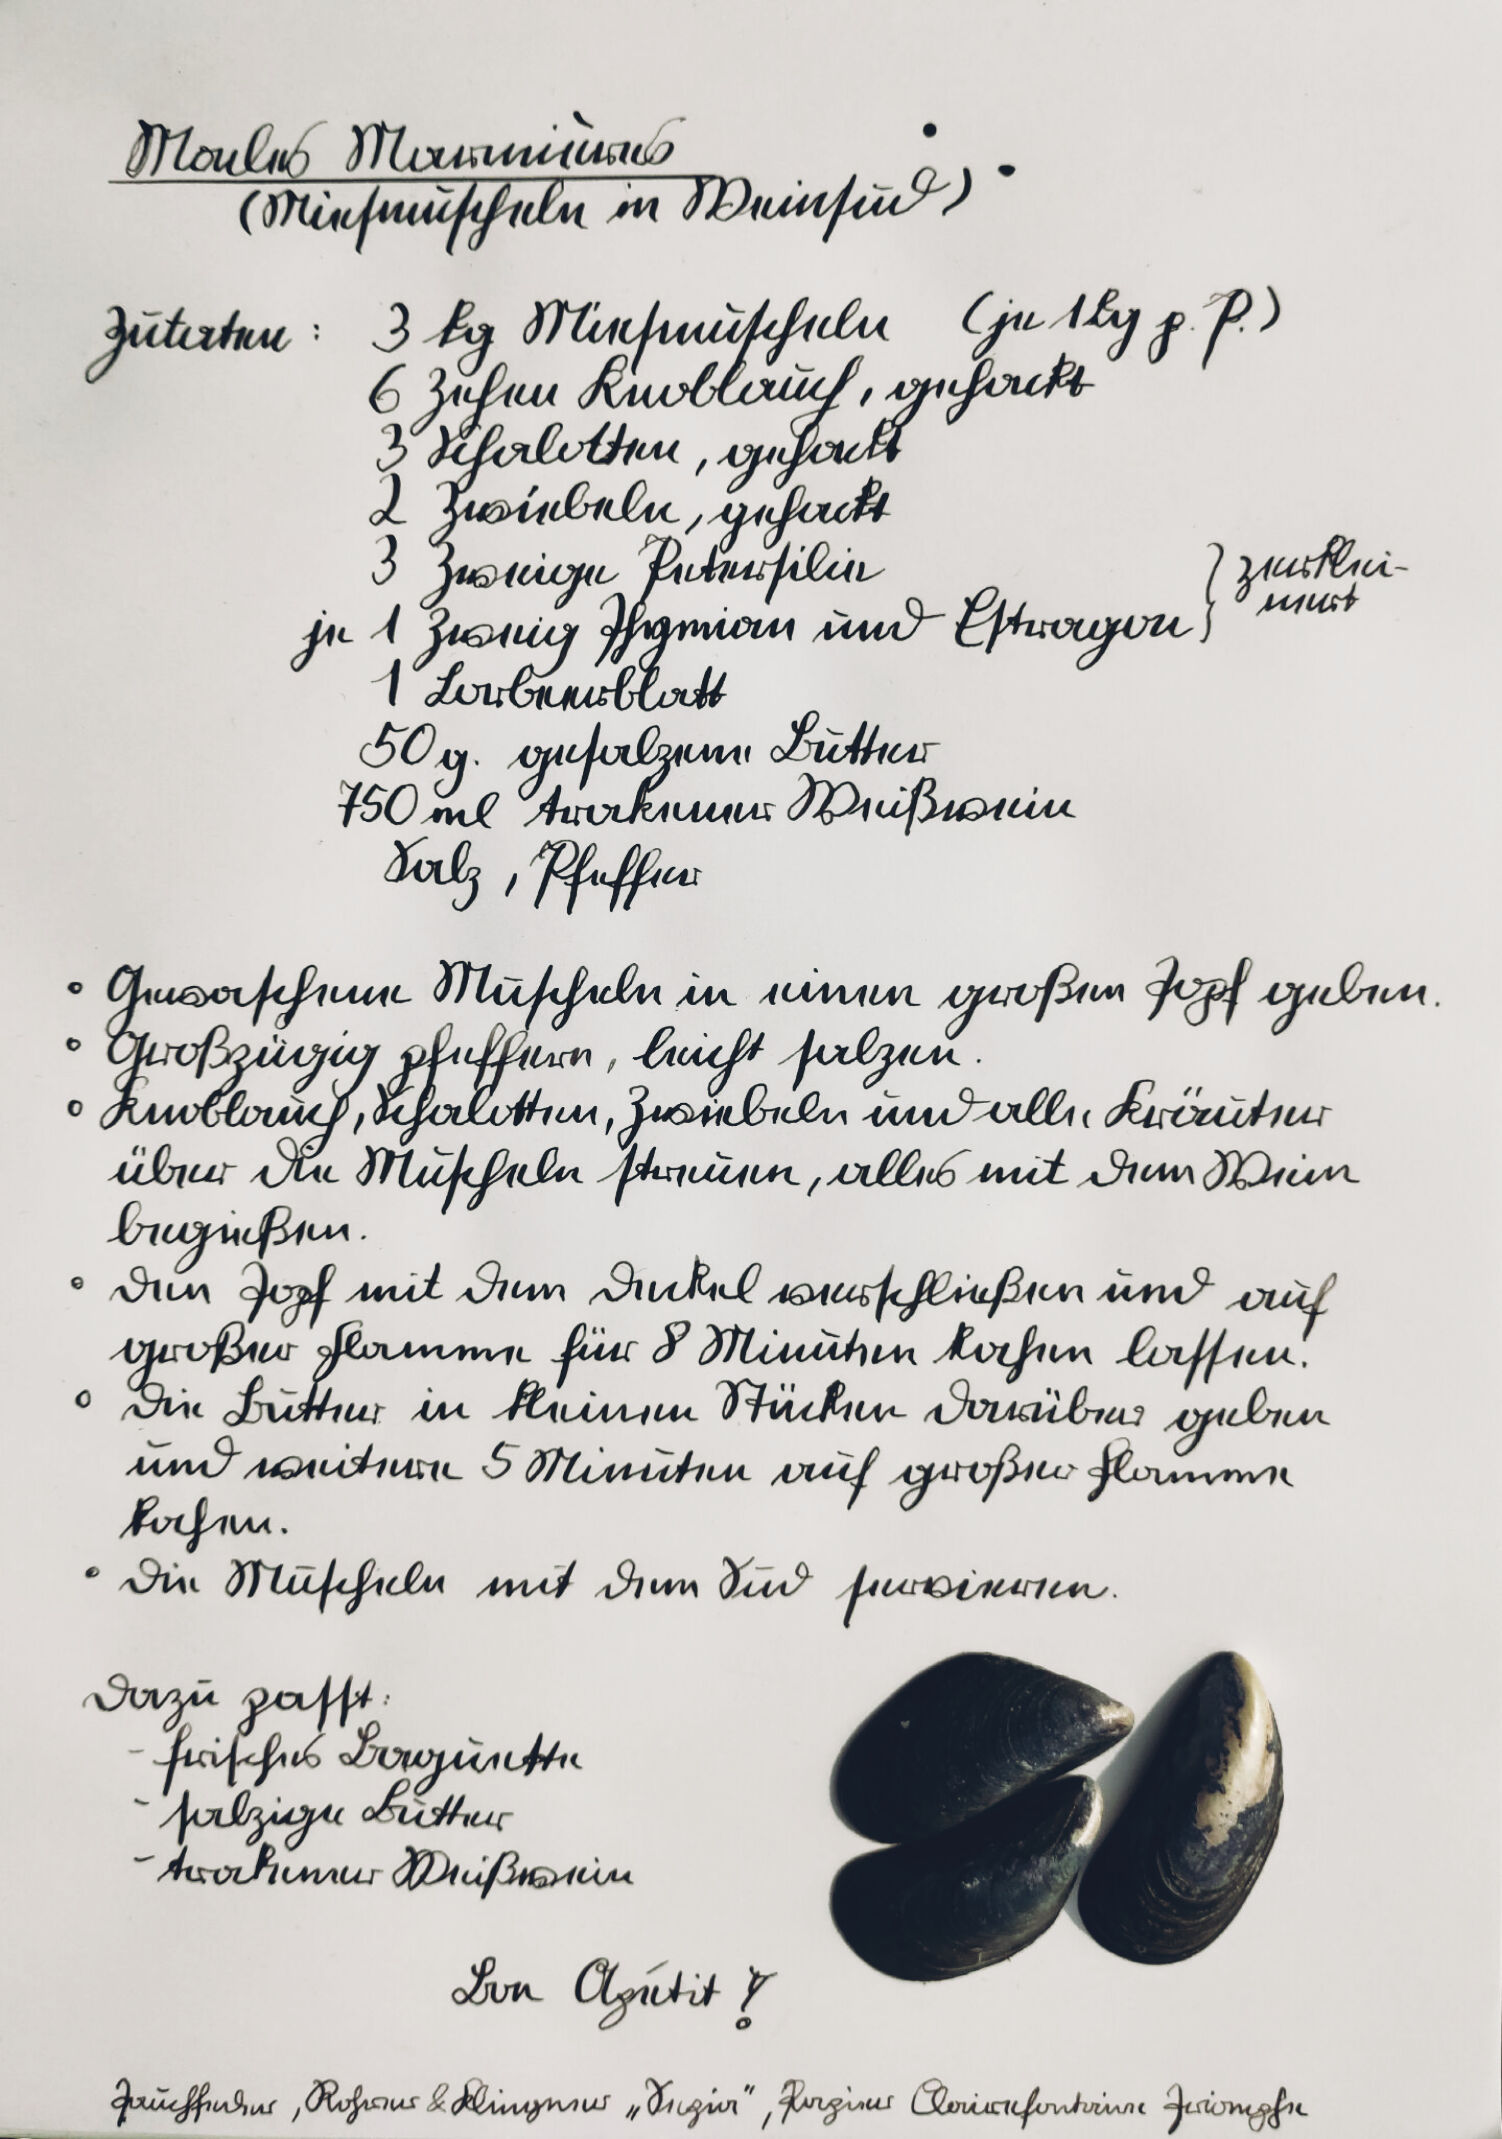 Moules Marinières
(Miesmuscheln in Weinsud)
Zutaten: 3 kg Miesmuscheln (je 1kg p. P.)
6 Zehen Knoblauch, gehackt
3 Schalotten, gehackt
2 Zwiebeln, gehackt
3 Zweige Petersilie
je 1 Zweig Thymian und Estragon } zerklei-
nert
1 Lorbeerblatt
50 g. gesalzene Butter
750 ml trockener Weißwein
Salz, Pfeffer
• Gewaschene Muscheln in einen großen Topf geben.
• Großzügig pfeffern, leicht salzen.
• Knoblauch, Schalotten, Zwiebeln und alle Kräuter
über die Muscheln streuen, alles mit dem Wein
begießen.
• Den Topf mit dem Deckel verschließen und auf
großer Flamme für 8 Minuten kochen lassen.
• Die Butter in kleinen Stücken darüber geben
und weitere 5 Minuten auf großer Flamme
kochen.
• Die Muscheln mit dem Sud servieren.
Dazu passt:
- frisches Baguette
- salzige Butter
- trockener Weißwein
Bon Apétit!
Tauchfeder, Rohrer & Klingner „Sepia“, Papier Clairefontaine Triomphe